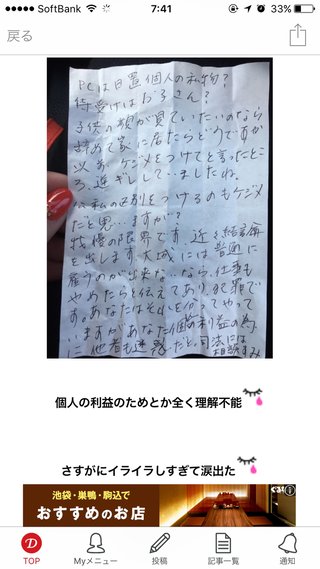 SoftBank 7:41 33%
戻る
PCは日置個人の私物？
待受けはお子さん？
子供の顔が見ていたいのなら
辞めて家に居たらどうですか
以前ケジメをつけてと言ったとこ
ろ逆ギレして…ましたね。
公私の区別をつけるのもケジメ
だと思…ますが？
の限界です。近々結論
を出します。には普通に
雇うのが出来ないなら、仕事も
やめたらと伝えてあり、犯罪で
す。あなたはそれを分ってやって
いますがあなた個人の利益の為
に他者も迷惑だと。司法には
相談ずみ
個人の利益のためとか全く理解不能
さすがにイライラしすぎて涙出た
池袋・巣鴨・駒込で
おすすめのお店
ぐるなび
D
TOP
Myメニュー
投稿
記事一覧
通知